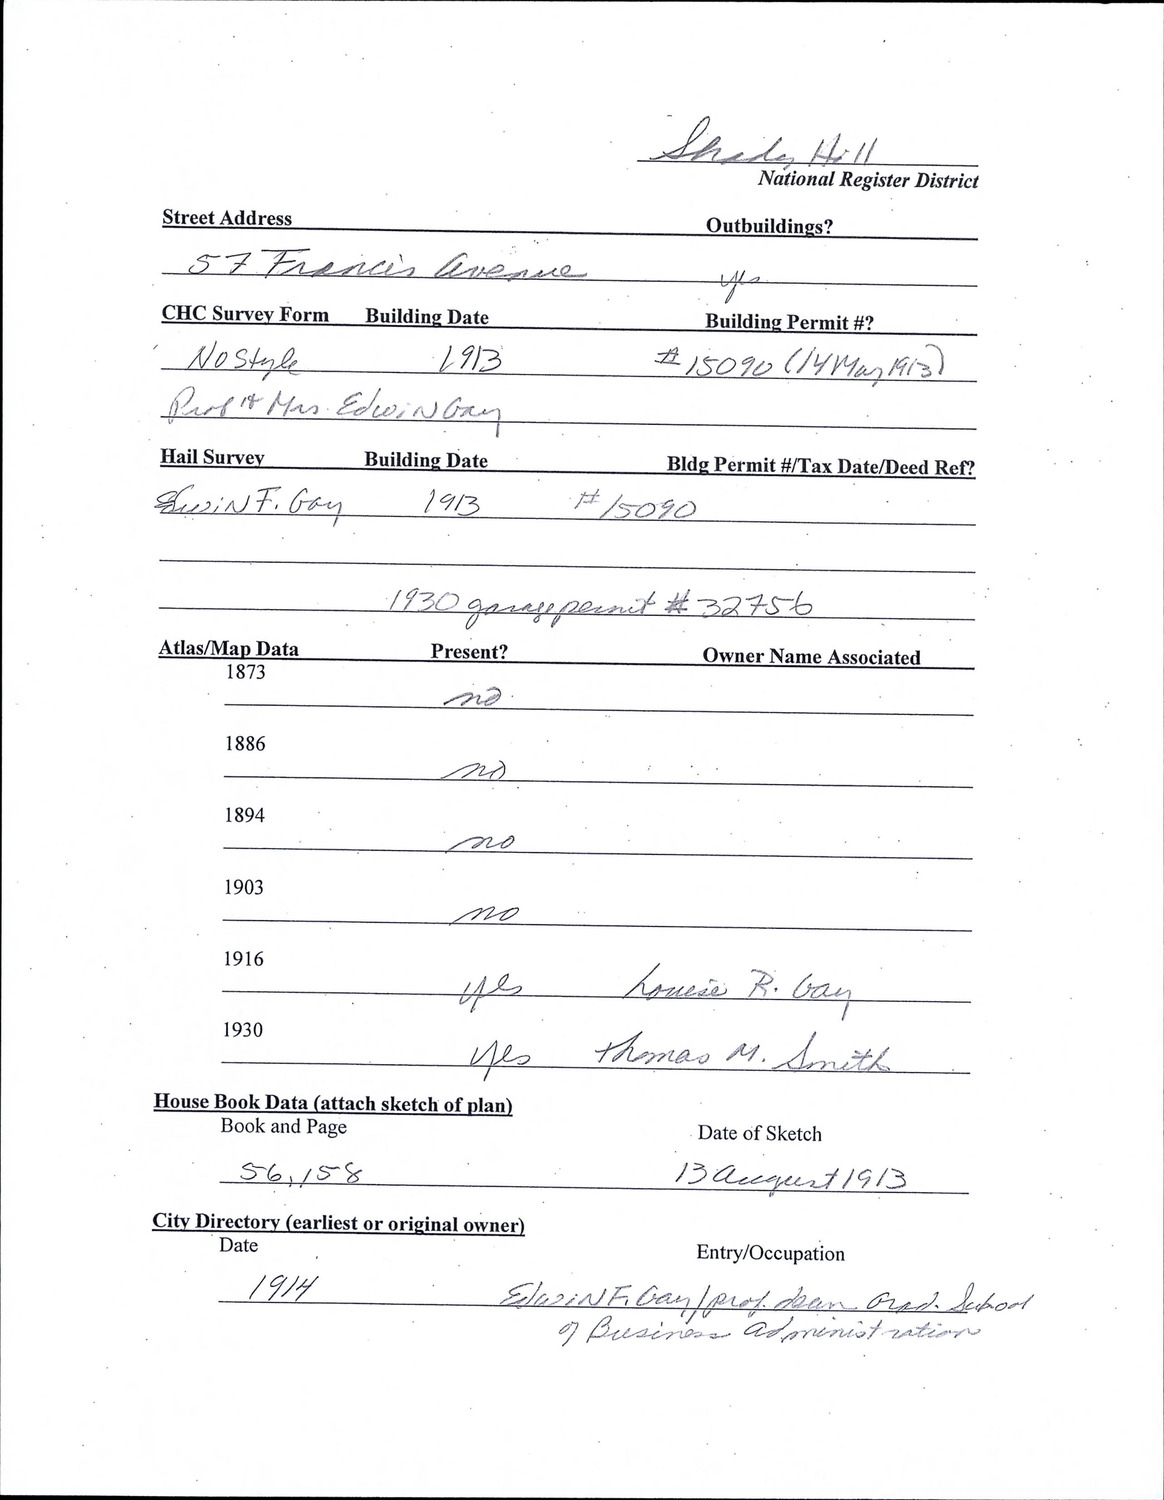 Shady Hill
National Register District
Street Address Outbuildings?
57 Francis Avenue yes
CHC Survey Form Building Date Building Permit #?
No Style 1913 #15090 (14 May 1913)
Prof & Mrs. Edwin Gay
Hail Survey Building Date Bldg Permit #/Tax Date/Deed Ref?
Edwin F. Gay 1913 #15090
1930 garage permit #32756
Atlas/Map Data Present? Owner Name Associated
1873
no
1886
no
1894
no
1903
no
1916
yes Louise R. Gay
1930
yes Thomas M. Smith
House Book Data (attach sketch of plan)
Book and Page Date of Sketch
56,158 13 August 1913
City Directory (earliest or original owner)
Date Entry/Occupation
1914 Edwin F. Gay/prof. dean Grad. School
of Business Administration